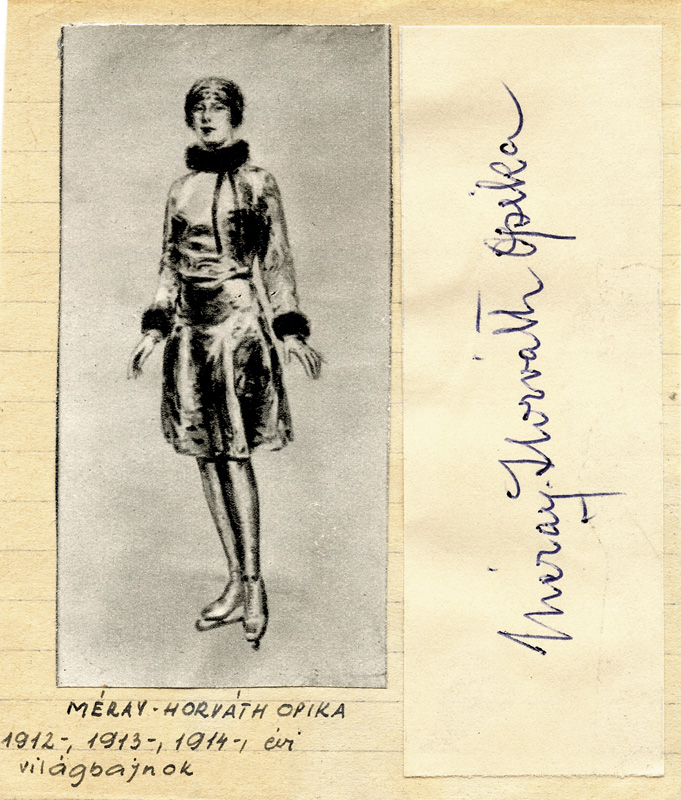 MÉRAY-HORVÁTH OPIKA
1912-, 1913-, 1914-, évi
világbajnok
Méray-Horváth Opika